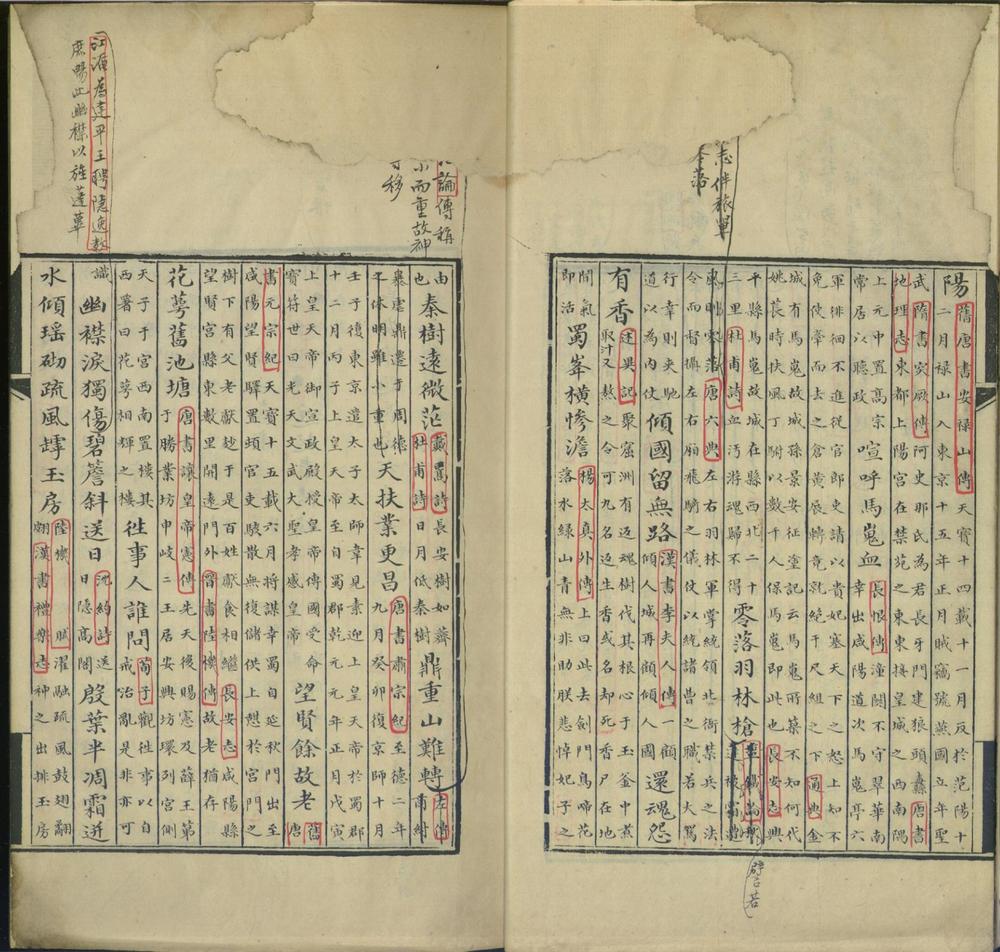 志伴旅單
陽
舊唐書安祿山傳天寶十四載十一月反於范陽十
二月祿山入東京十五年正月賊竊號燕國立年聖
武隋書突厥傳阿史那氏為君長牙門建狼頭纛唐書
地理志東都上陽宮在禁苑之東東接皇城之西南隅
上元中置高宗
常居以聽政
喧呼馬嵬血
長恨傳潼關不守翠華南
幸出咸陽道次馬嵬亭六
軍徘徊不進從官郎吏請以貴妃塞天下之怒上知不
免使牽而去之倉黃展轉竟就絕于尺組之下通典金
城有馬嵬故城孫景安征塗記云馬嵬所築不知何代
姚萇時扶風丁附以數千人保馬嵬即此也長安志興
平縣馬嵬故城在縣西北二十
三里杜甫詩血汚游魂歸不得
零落羽林槍
東則零落唐六典左右羽林軍掌統領北衙禁兵之法
令而督攝左右廂飛騎之儀仗以統諸曹之職若大駕
行幸則夾馳
道以為内仗
傾國留無路
漢書李夫人傳一顧
傾人城再顧傾人國
還魂怨
有香
述異記聚窟洲有返魂樹伐其根心于玉釜中煮
取汁又熬之令可九名返生香或名却死香尸在地
聞氣
即活
蜀峯橫慘澹
楊太真外傳上曰此去劍門鳥啼花
落水綠山青無非助朕悲悼妃子之
譬若
論傳稱
小而重故神
移
由
也
秦樹遠微茫
戴暠詩長安樹如薺
杜甫詩日月低秦樹
鼎重山難轉
左傳
商紂
暴虐鼎遷于周德
休明雖小重也
天扶業更昌
唐書肅宗紀至德二年
九月癸卯復京師十月
壬子復東京遣太子太師韋見素迎上皇天帝於蜀郡
十二月丙子上皇天帝至自蜀郡乾元元年正月戊寅
上皇天帝御宣政殿授皇帝傳國受命
寶符世曰光天文武大聖孝感皇帝
望賢餘故老
舊
唐
書元宗紀天寶十五載六月將謀幸蜀自延秋門出至
咸陽望賢驛置頓官吏駭散無復儲供上憩於宮門之
樹下有父老獻麨于是百姓獻食相繼長安志咸陽縣
望賢宮縣東數里開遠門外晉書陸機傳故老猶存
花萼舊池塘
唐書讓皇帝憲傳先天後賜憲及薛王第
于勝業坊申岐二王居安興坊環列宮側
天子于宮西南置樓其
西署曰花萼相輝之樓
往事人誰問
荀子觀往事以自
戒治亂是非亦可
識
幽襟淚獨傷碧簷斜送日
沈約詩送
日隱高閣
殷葉半凋霜迸
水傾瑶砌疏風罅玉房
陸機 賦濯融疏風鼓翅翮
翮漢書禮樂志神之出排玉房
江淹為建平王聘隱逸教
庶暢此幽襟以旌蓬蓽